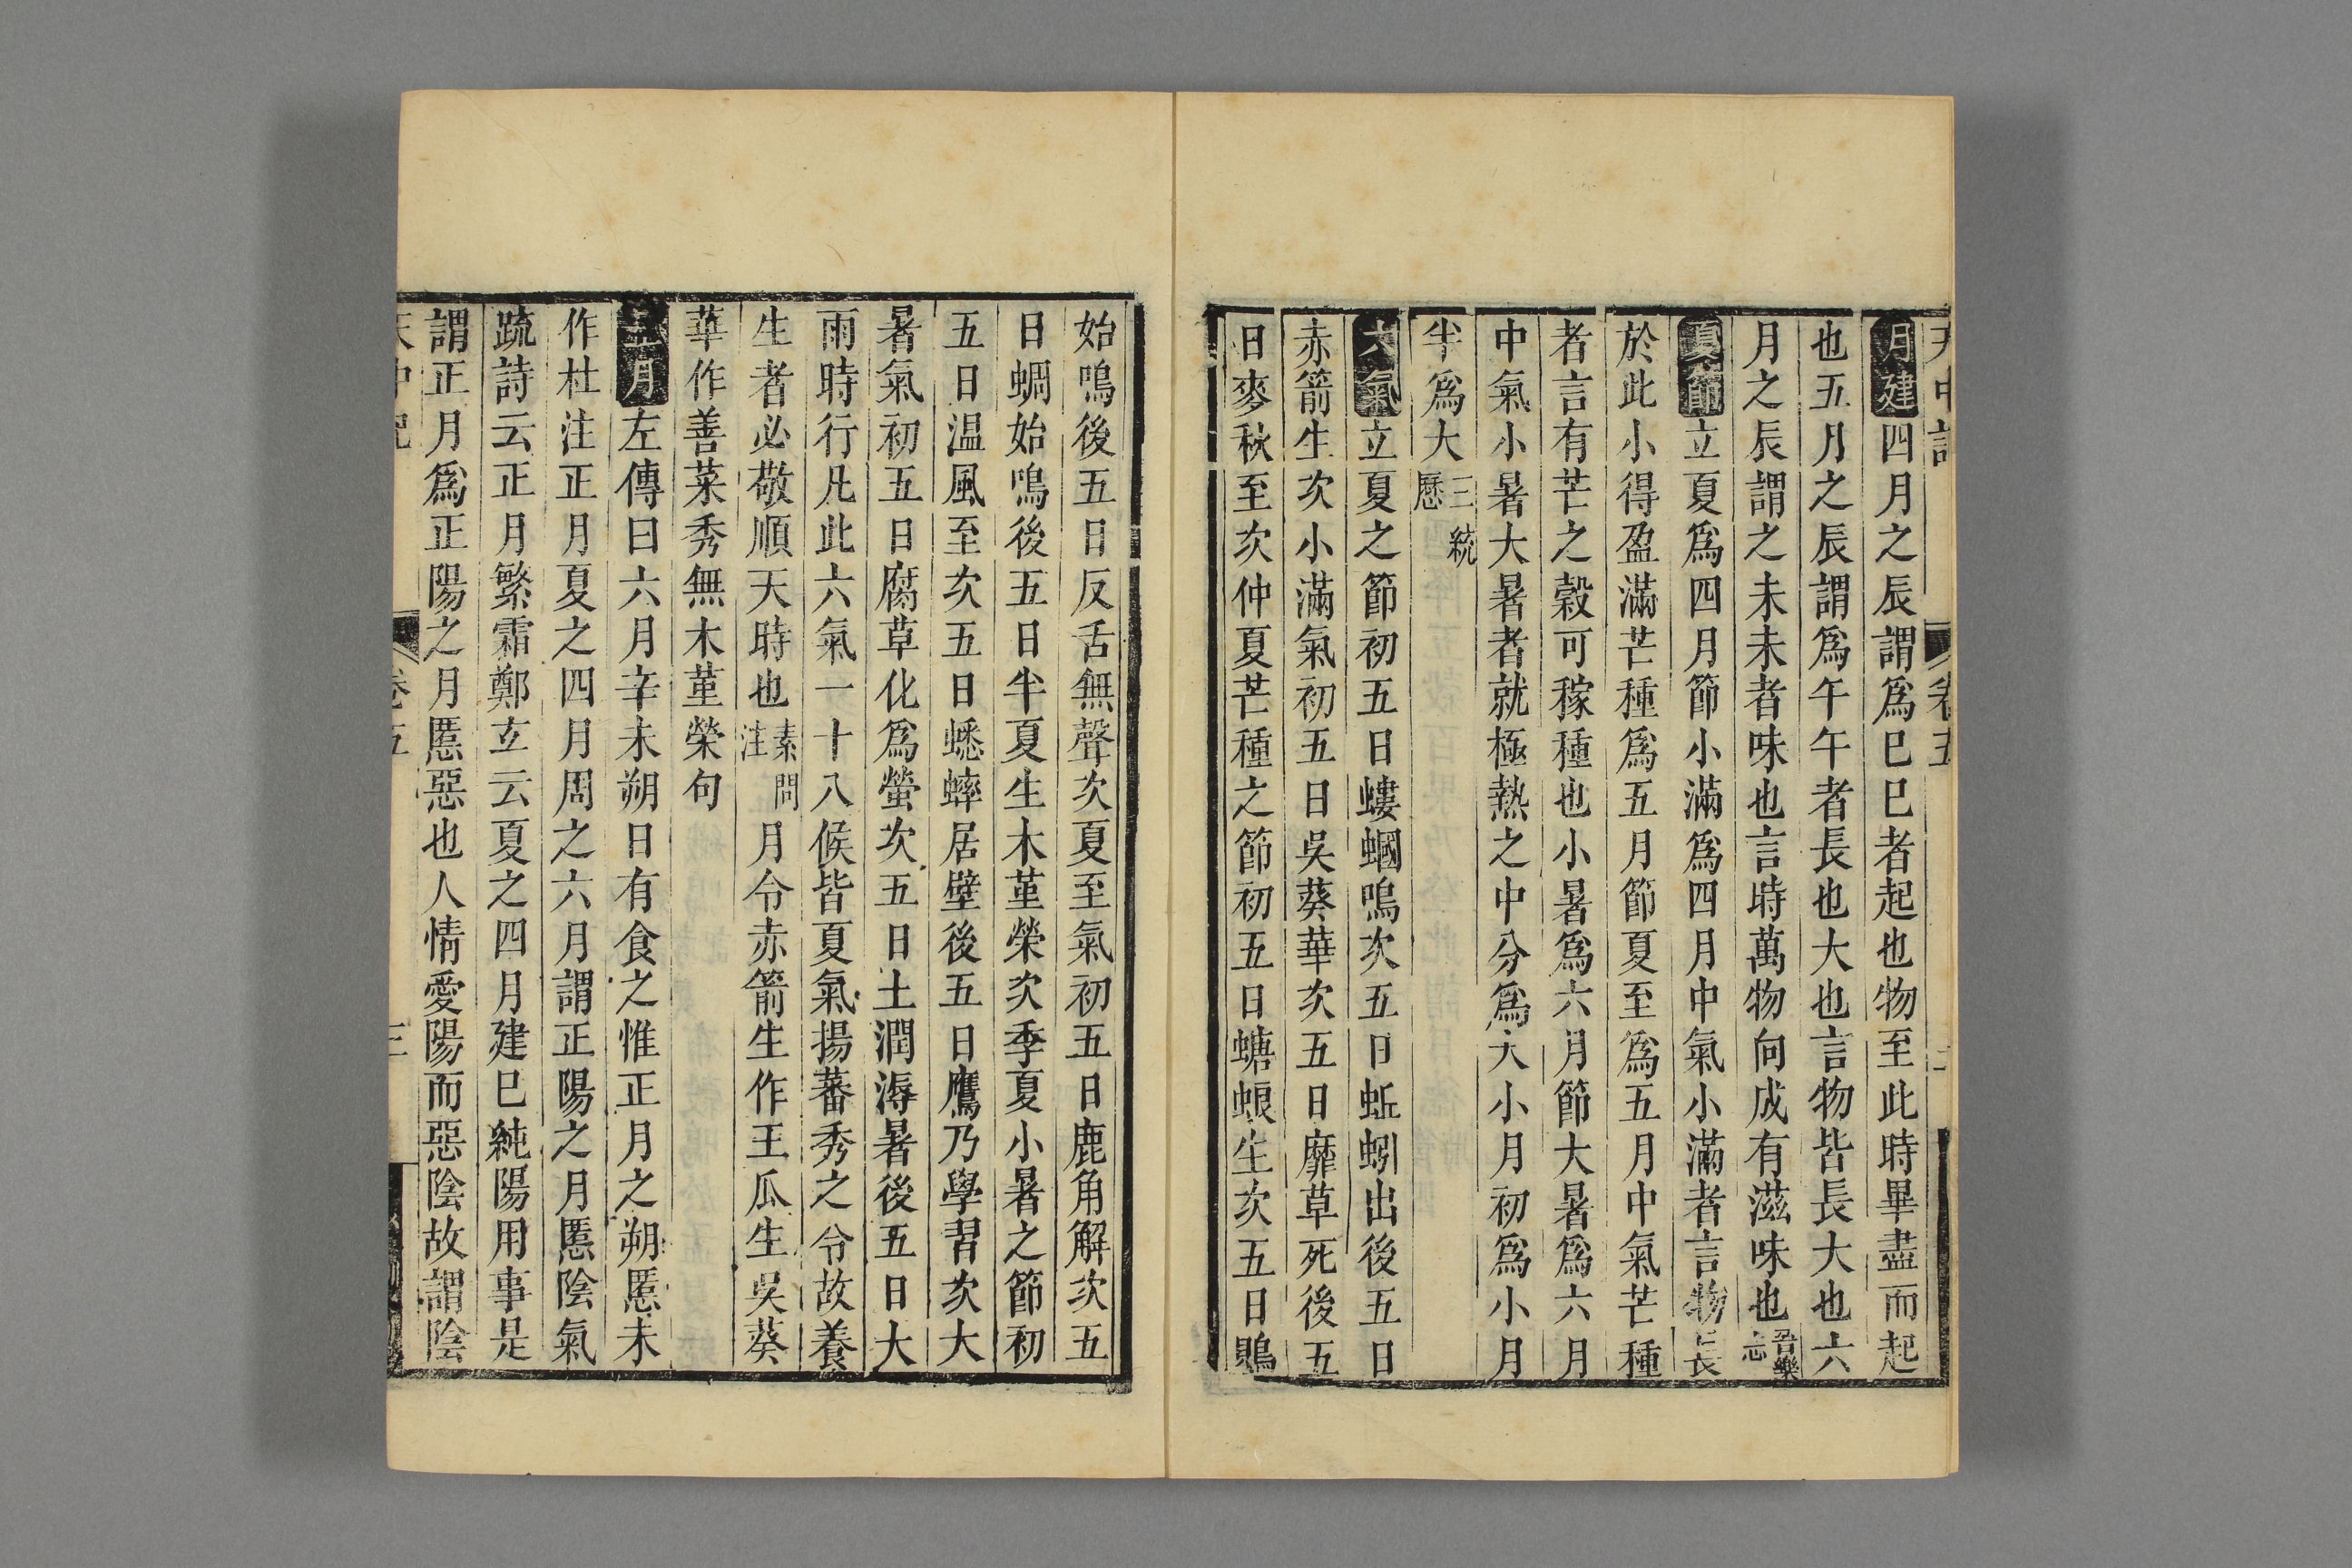 天中記 卷五 二
月建四月之辰謂爲巳巳者起也物至此時畢盡而起
也五月之辰謂爲午午者長也大也言物皆長大也六
月之辰謂之未未者味也言時萬物向成有滋味也晉樂志
夏節立夏爲四月節小滿爲四月中氣小滿者言物長
於此小得盈滿芒種爲五月節夏至爲五月中氣芒種
者言有芒之穀可稼種也小暑爲六月節大暑爲六月
中氣小暑大暑者就極熱之中分爲大小月初爲小月
半爲大三統歷
六氣立夏之節初五日螻蟈鳴次五日蚯蚓出後五日
赤箭生次小滿氣初五日吳葵華次五日靡草死後五
日麥秋至次仲夏芒種之節初五日螗蜋生次五日鵙
始鳴後五日反舌無聲次夏至氣初五日鹿角解次五
日蜩始鳴後五日半夏生木堇榮次季夏小暑之節初
五日温風至次五日蟋蟀居壁後五日鷹乃學習次大
暑氣初五日腐草化爲螢次五日土潤溽暑後五日大
雨時行凡此六氣一十八候皆夏氣揚蕃秀之令故養
生者必敬順天時也素問注月令赤箭生作王瓜生吳葵
華作善菜秀無木堇榮句
正月左傳曰六月辛未朔日有食之惟正月之朔慝未
作杜注正月夏之四月周之六月謂正陽之月慝陰氣
疏詩云正月繁霜鄭玄云夏之四月建巳純陽用事是
謂正月爲正陽之月慝惡也人情愛陽而惡陰故謂陰
天中記 卷五 三